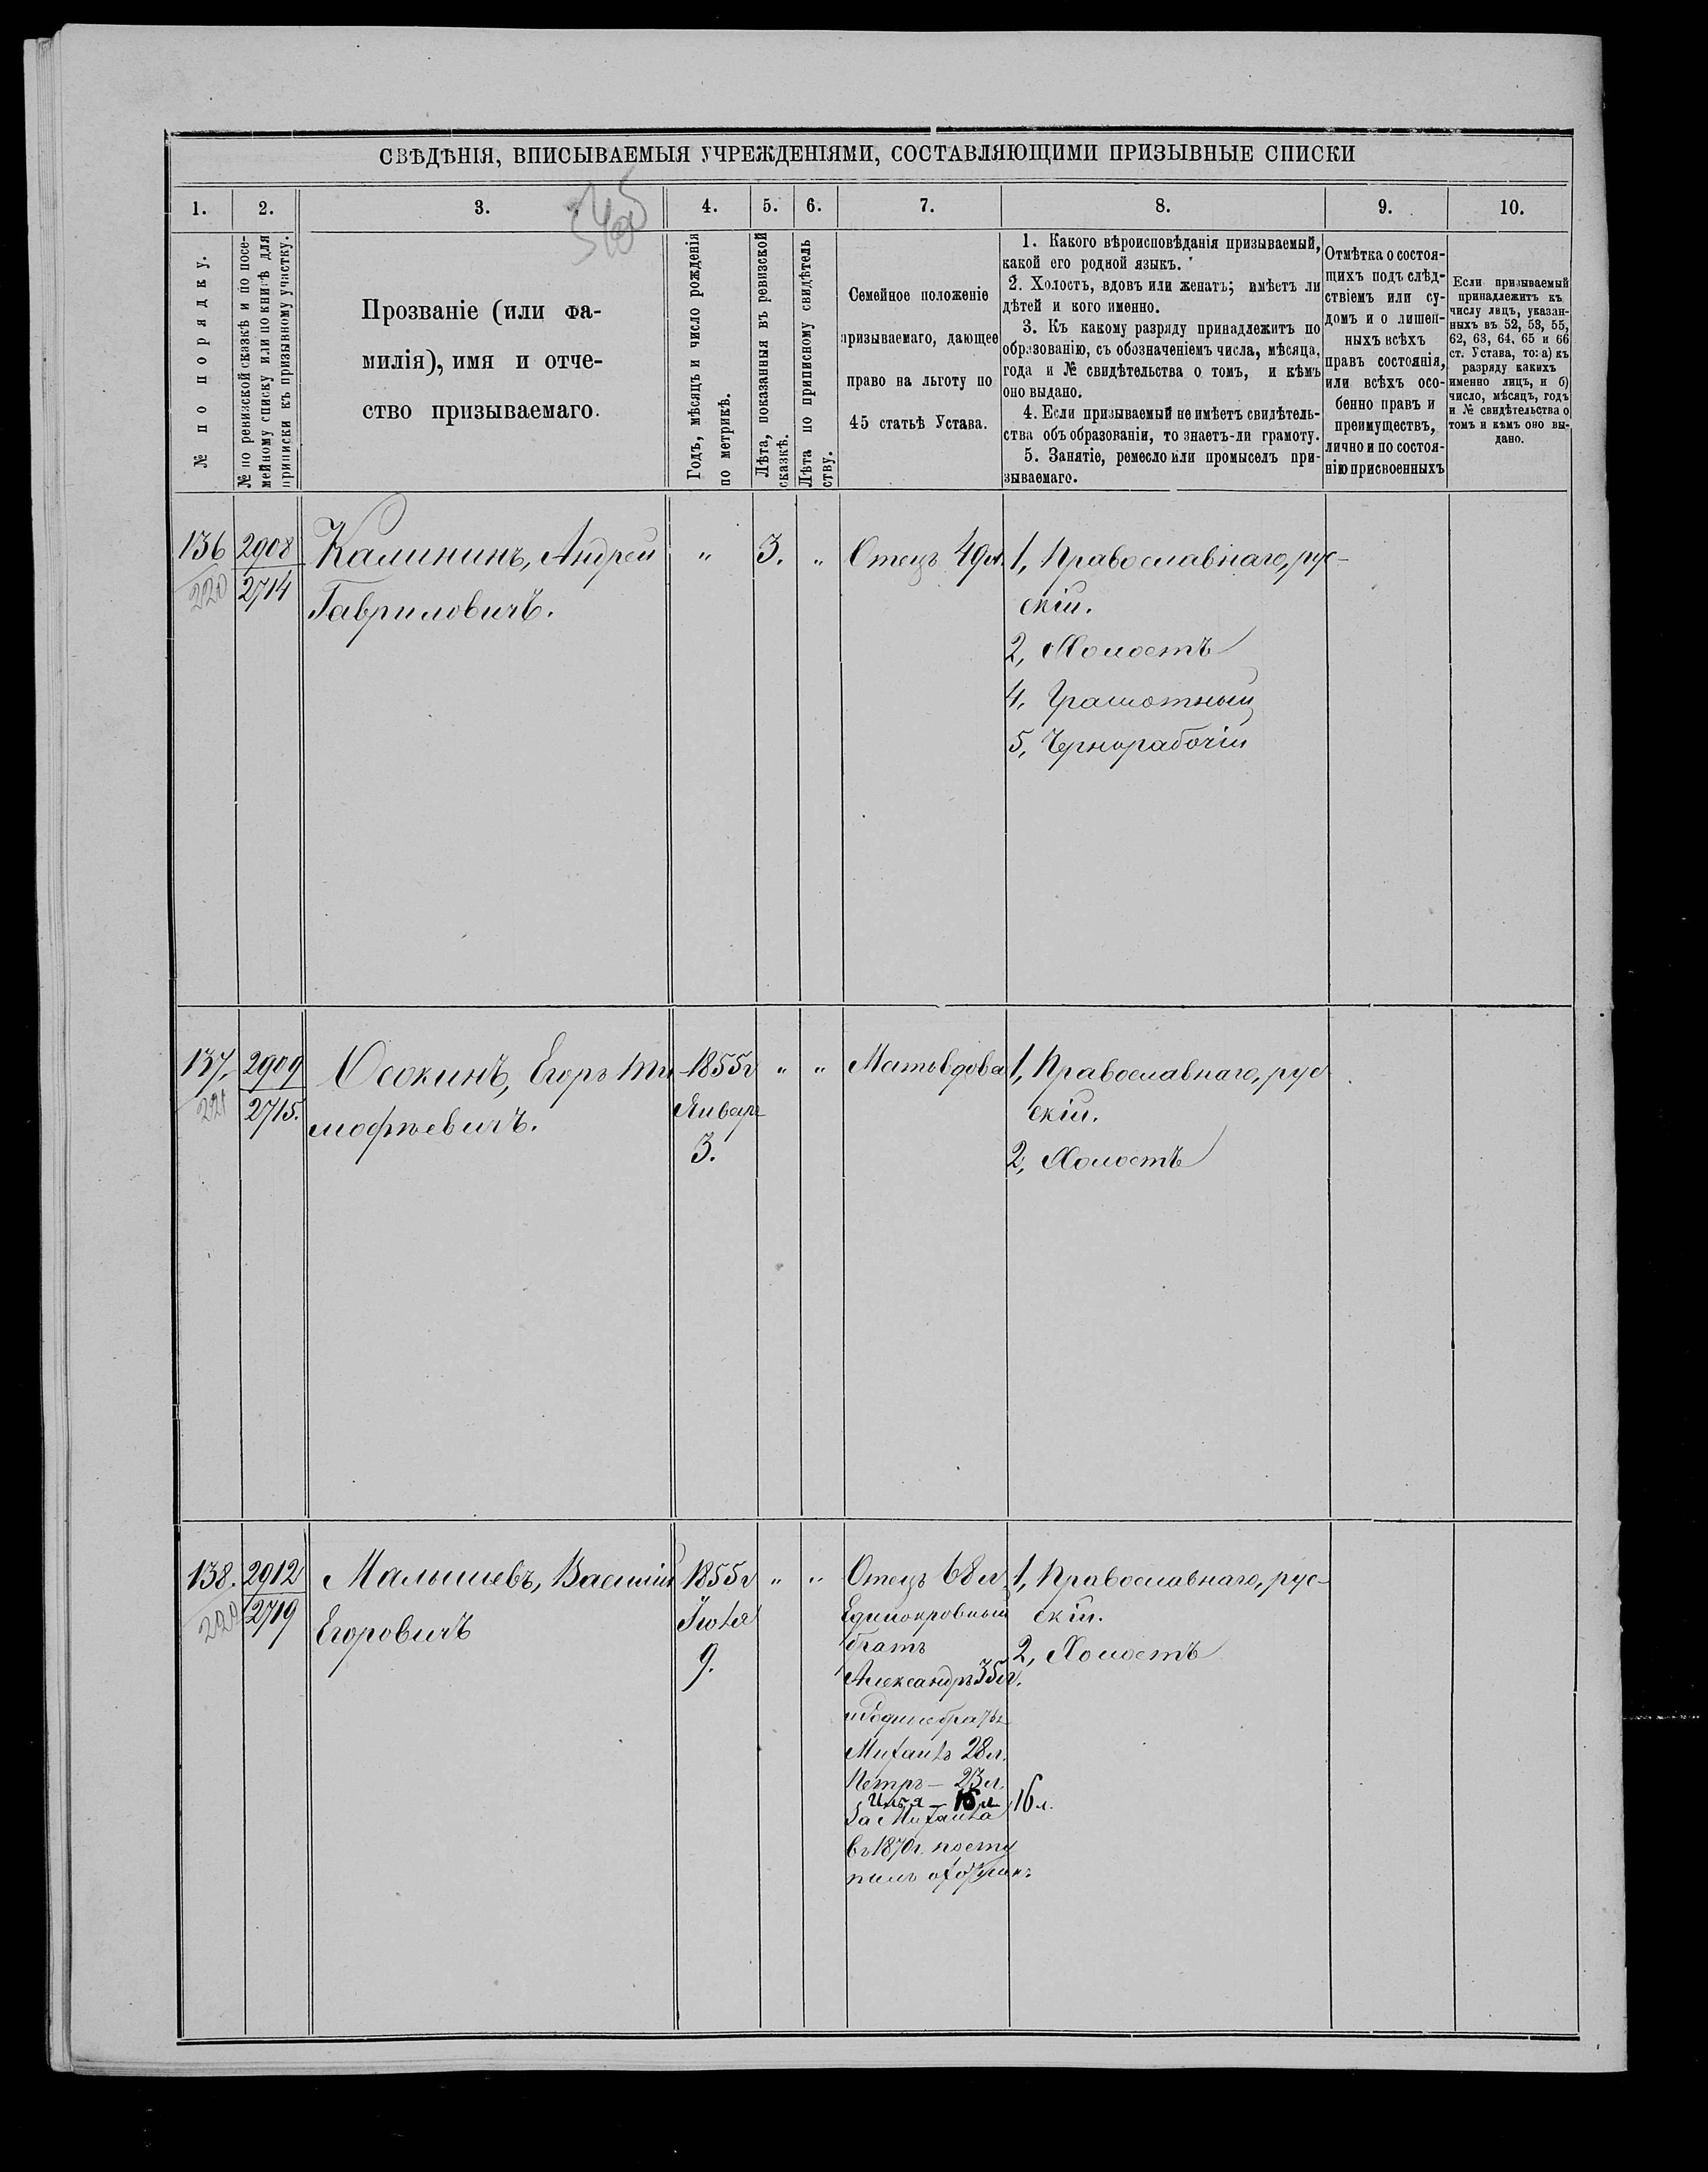 СВѢДѢНІЯ, ВПИСЫВАЕМЫЯ УЧРЕЖДЕНІЯМИ, СОСТАВЛЯЮЩИМИ ПРИЗЫВНЫЕ СПИСКИ
1. 2. 3. 4. 5. 6. 7. 8. 9. 10.
№ по порядку.
№ по ревизской сказкѣ и по посе-
мейному списку или по книгѣ для
приписки къ призывному участку.
Прозваніе (или фа-
милія), имя и отче-
ство призываемаго.
Годъ, мѣсяцъ и число рожденія
по метрикѣ.
Лѣта, показанныя въ ревизской
сказкѣ.
Лѣта по приписному свидѣтель
ству.
Семейное положеніе
призываемаго, дающее
право на льготу по
45 статьѣ Устава.
1. Какого вѣроисповѣданія призываемый,
какой его родной языкъ.
2. Холостъ, вдовъ или женатъ; имѣетъ ли
дѣтей и кого именно.
3. Къ какому разряду принадлежитъ по
образованію, съ обозначеніемъ числа, мѣсяца,
года и № свидѣтельства о томъ, и кѣмъ
оно выдано.
4. Если призываемый не имѣетъ свидѣтель-
ства объ образованіи, то знаетъ-ли грамоту.
5. Занятіе, ремесло или промыселъ при-
зываемаго.
Отмѣтка о состоя-
щихъ подъ слѣд-
ствіемъ или су-
домъ и о лишен-
ныхъ всѣхъ
правъ состоянія,
или всѣхъ осо-
бенно правъ и
преимуществъ,
лично и по состоя-
нію присвоенныхъ
Если призываемый
принадлежитъ къ
числу лицъ, указан-
ныхъ въ 52, 53, 55,
62, 63, 64, 65 и 66
ст. Устава, то: а) къ
разряду какихъ
именно лицъ, и б)
число, мѣсяцъ, годъ
и № свидѣтельства о
томъ и кѣмъ оно вы-
дано.
136
220
2908
2714
Калининъ, Андрей
Гавриловичъ.
"
3.
"
Отецъ 49 л.
1, Православнаго, рус-
скій.
2, Холостъ
4. Грамотный
5, Чернорабочій
137.
221
2909
2715.
Осокинъ, Егоръ Ти
мофѣевичъ.
1855 г
Январ
3.
"
"
Мать вдова
1, Православнаго, рус
скій.
2, Холостъ
138.
222
2912
2719
Малышевъ, Василій
Егоровичъ
1855 г
Іюля
9.
"
"
Отецъ 68 л.
Единокровный
братъ
Александръ 35 л.
и Родные братья
Михаилъ 28 л.
Петръ — 23 л.
Илья — 16 л 16 л.
За Михаила
въ 1870 г. посту
пилъ охотник.
1, Православнаго, рус-
скій.
2, Холостъ